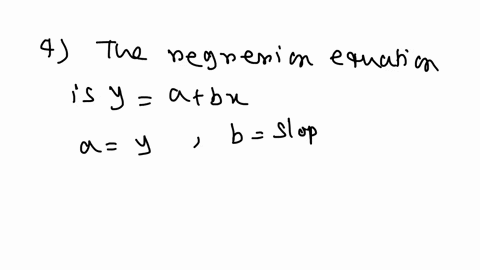 4) The regression equation
is y = a+bx
a = y , b = slop